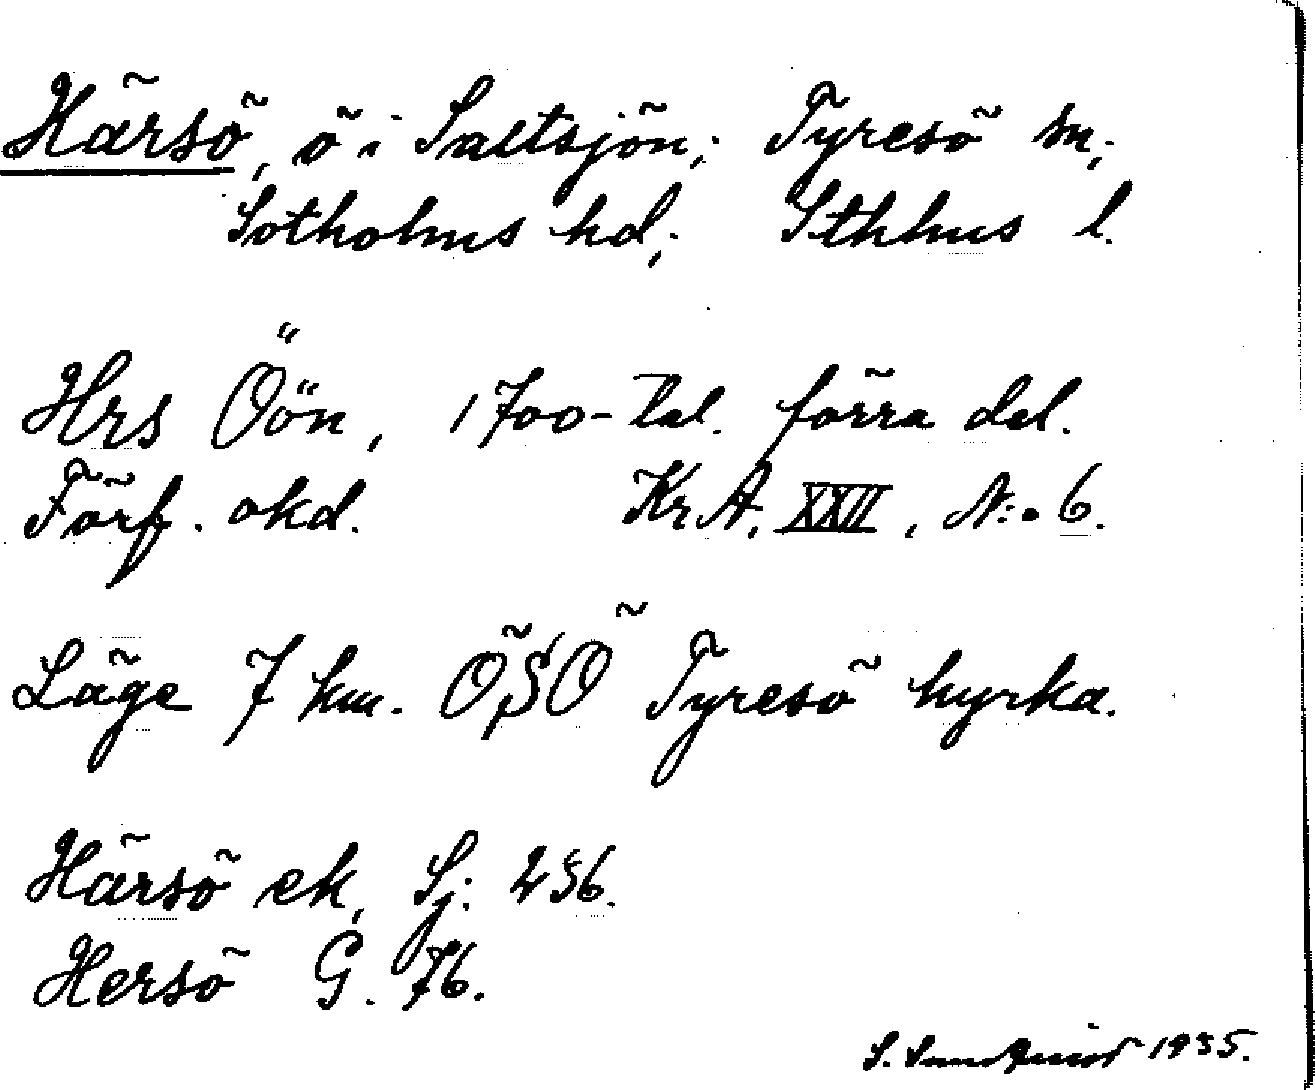 Härsö, ö i Saltsjön; Tyresö sn;
Sotholms hd; Sthlms l.
Hrs Öön, 1700-tal. förra del.
Förf. okd. Kr A. XXII, N:o 6.
Läge 7 km. ÖSÖ Tyresö kyrka.
Härsö ek, Sj: 256.
Hersö G. 76.
S. 1935.